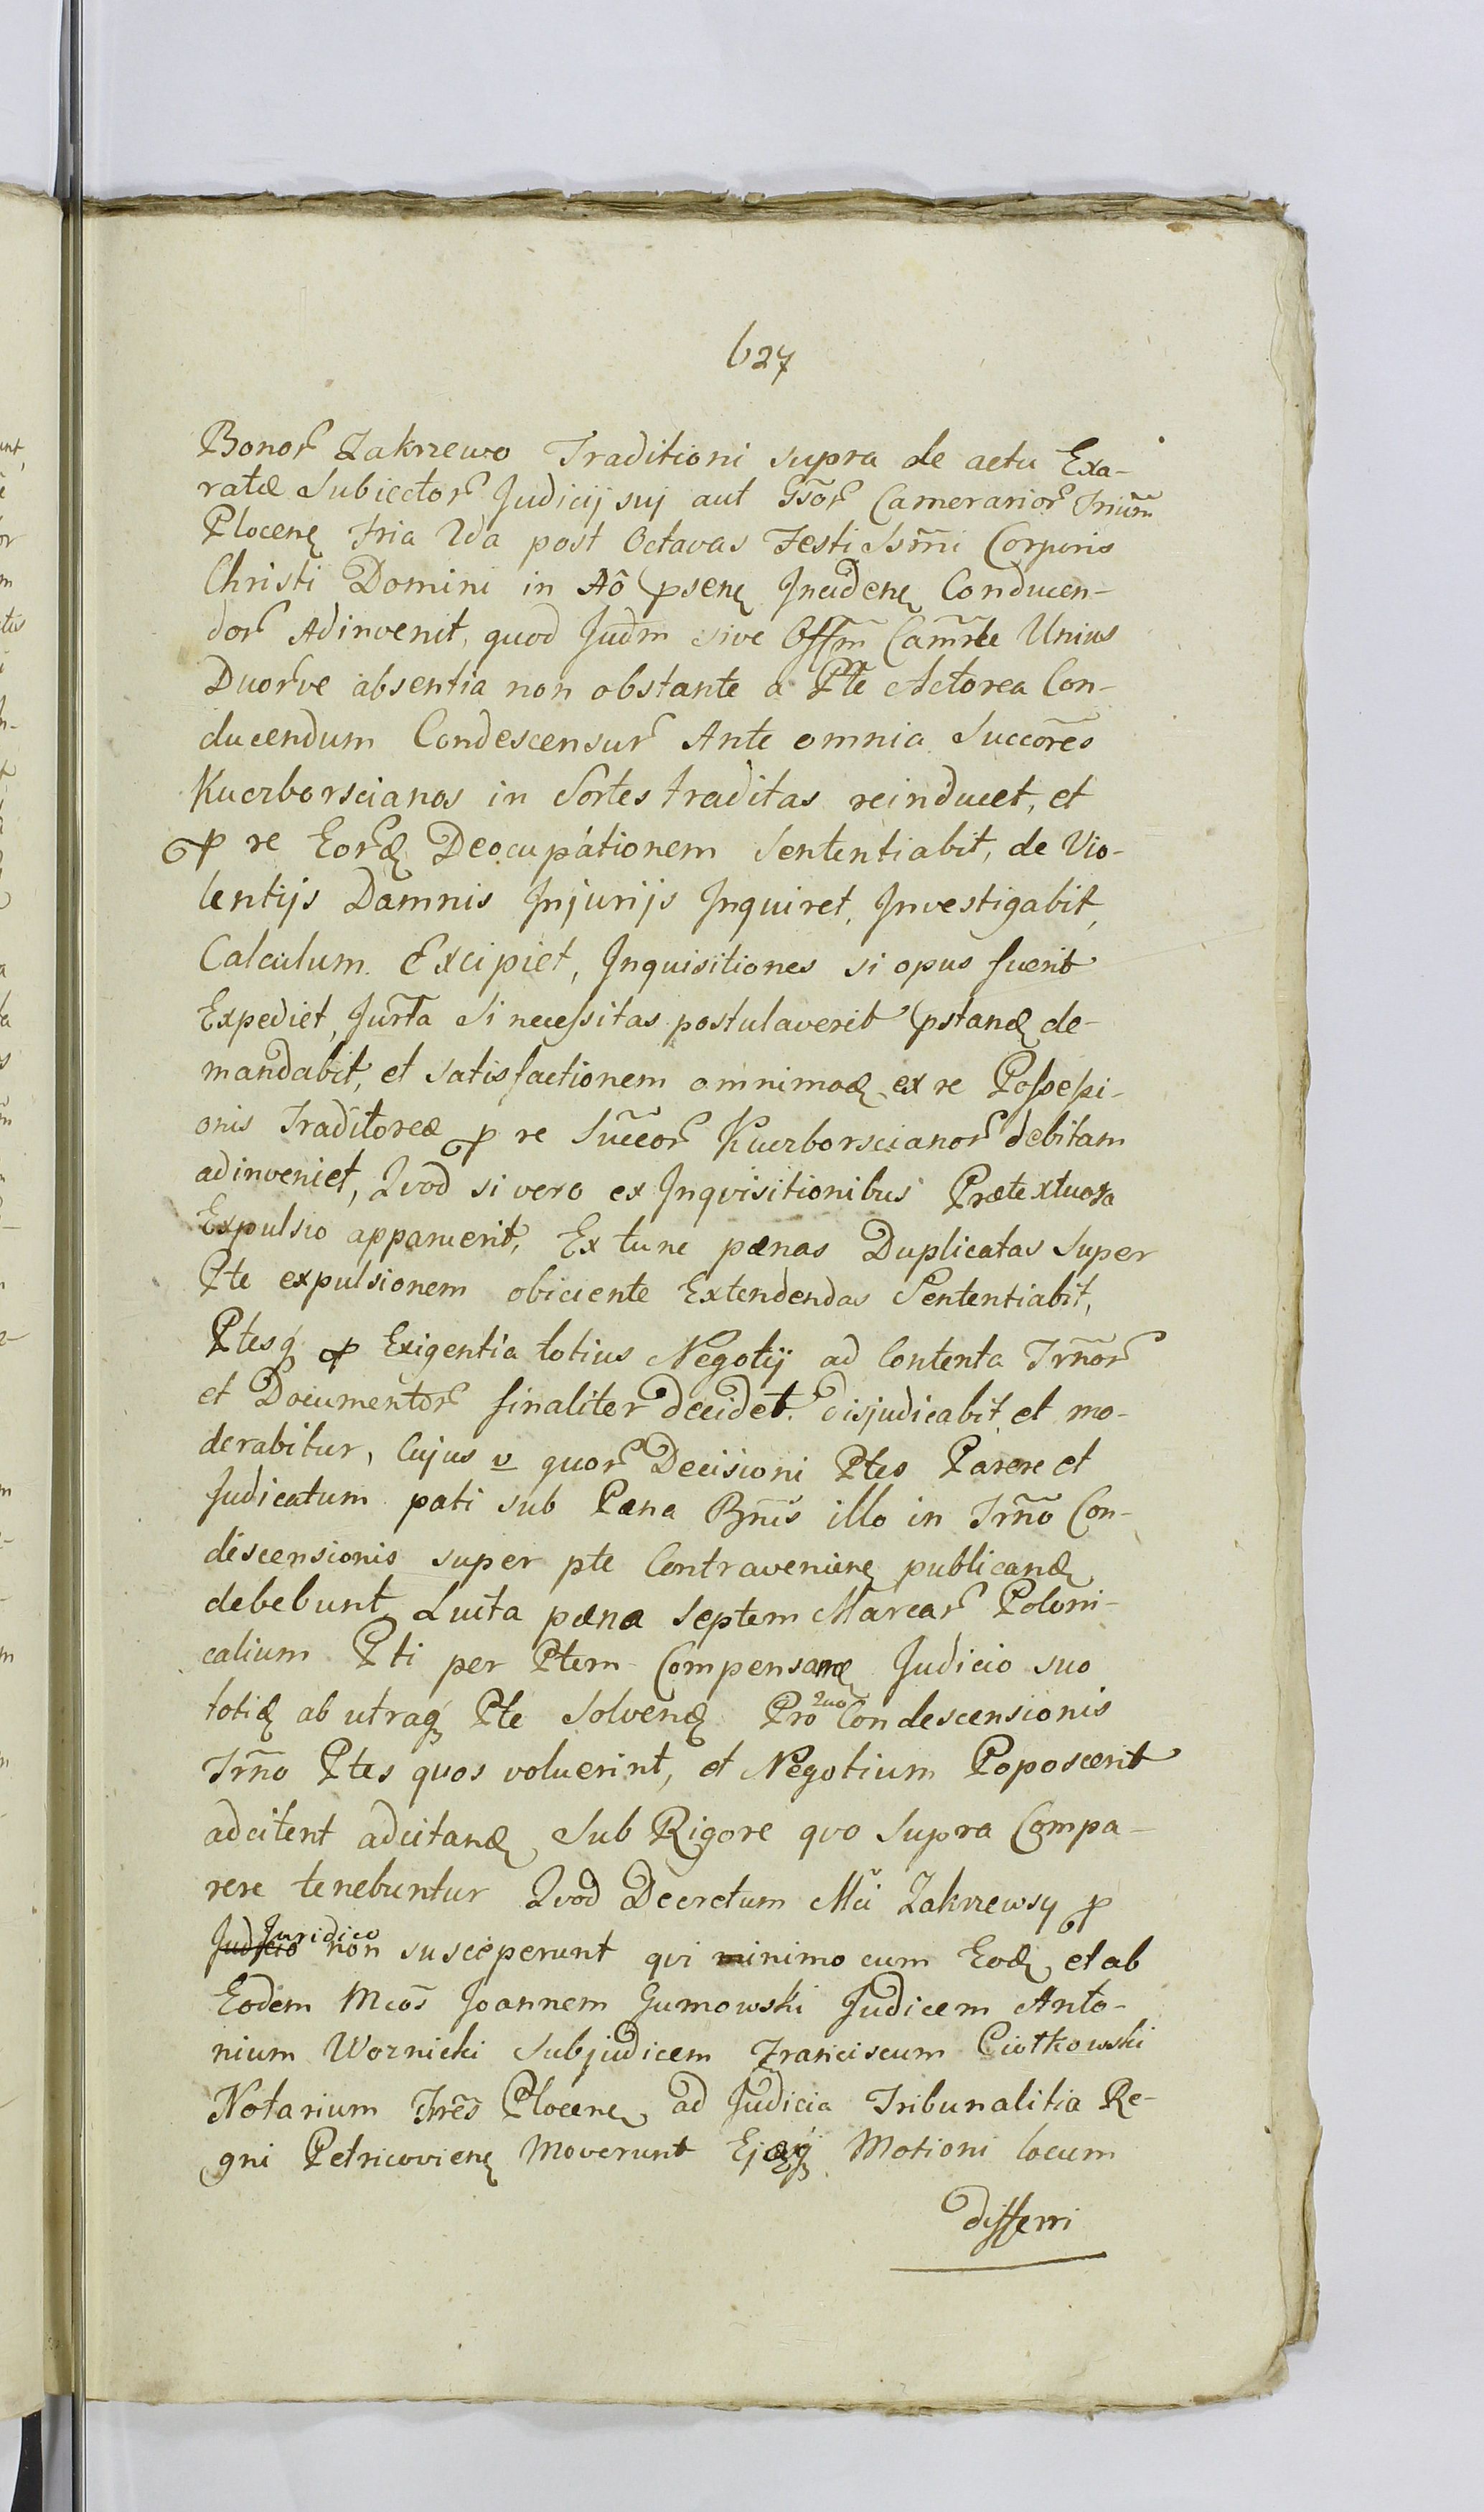 627
Bonor Zakrzewo Traditioni supra de actu Exa-
ratæ Subiector Judicij sui aut Camerarior
Plocen Fria 2da post Octavas Festi Ssm̃i Corporis
Christi Domini in Aõ psen Inciden Conducen-
dor Adinvenit, quod Judm sive Offm̃ Camr̃le Unius
Duorve absentia non obstante a Pte Actorea Con-
ducendum Condescensur Ante omnia Succor̃es
Kuczborscianos in Sortes traditas reinducet, et
p re Eord Deocupationem Sententiabit, de Vio-
lentijs Damnis Injurijs Inquiret, Investigabit,
Calculum Excipiet, Inquisitiones si opus fuerit
Expediet, Jur̃ta Si necessitas postulaverit pstand de-
mandabit, et satisfactionem omnimod ex re Possessi-
onis Traditoreæ p re Succ̃or Kuczborscianor debitam
adinveniet, Quod si vero ex Inquisitionibus Prætextuosa
Expulsio apparuerit, Ex tunc pænas Duplicatas Super
Pte expulsionem obiciente Extendendas Sententiabit,
Ptesq p Exigentia totius Negotij ad Contenta Trñor
et Documentor finaliter decidet. disjudicabit et mo-
derabitur, Cujus v quor Decisioni Ptes Parere et
Judicatum pati sub Pæna Bñis illo in Trño Con-
descensionis super pte Contravenien publicand
debebunt Luita pæna Septem Marcar Poloni-
calium Pti per Ptem Compensan Judicio suo
totid ab utraq Pte Solvend Pro quo Condescensionis
Trño Ptes quos voluerint, et Negotium Poposcerit
adcitent adcitand Sub Rigore quo Supra Compa-
rere tenebuntur Quod Decretum Mci Zakrzewsy p
Judicio Juridico non susceperunt qui minimo cum Eod et ab
Eodem Mcos Joannem Gumowski Judicem Anto-
nium Woznicki Subjudicem Franciscum Ciotkowski
Notarium Tres Plocen ad Judicia Tribunalitia Re-
gni Petricovien Moverunt Ejq Motioni locum
differri